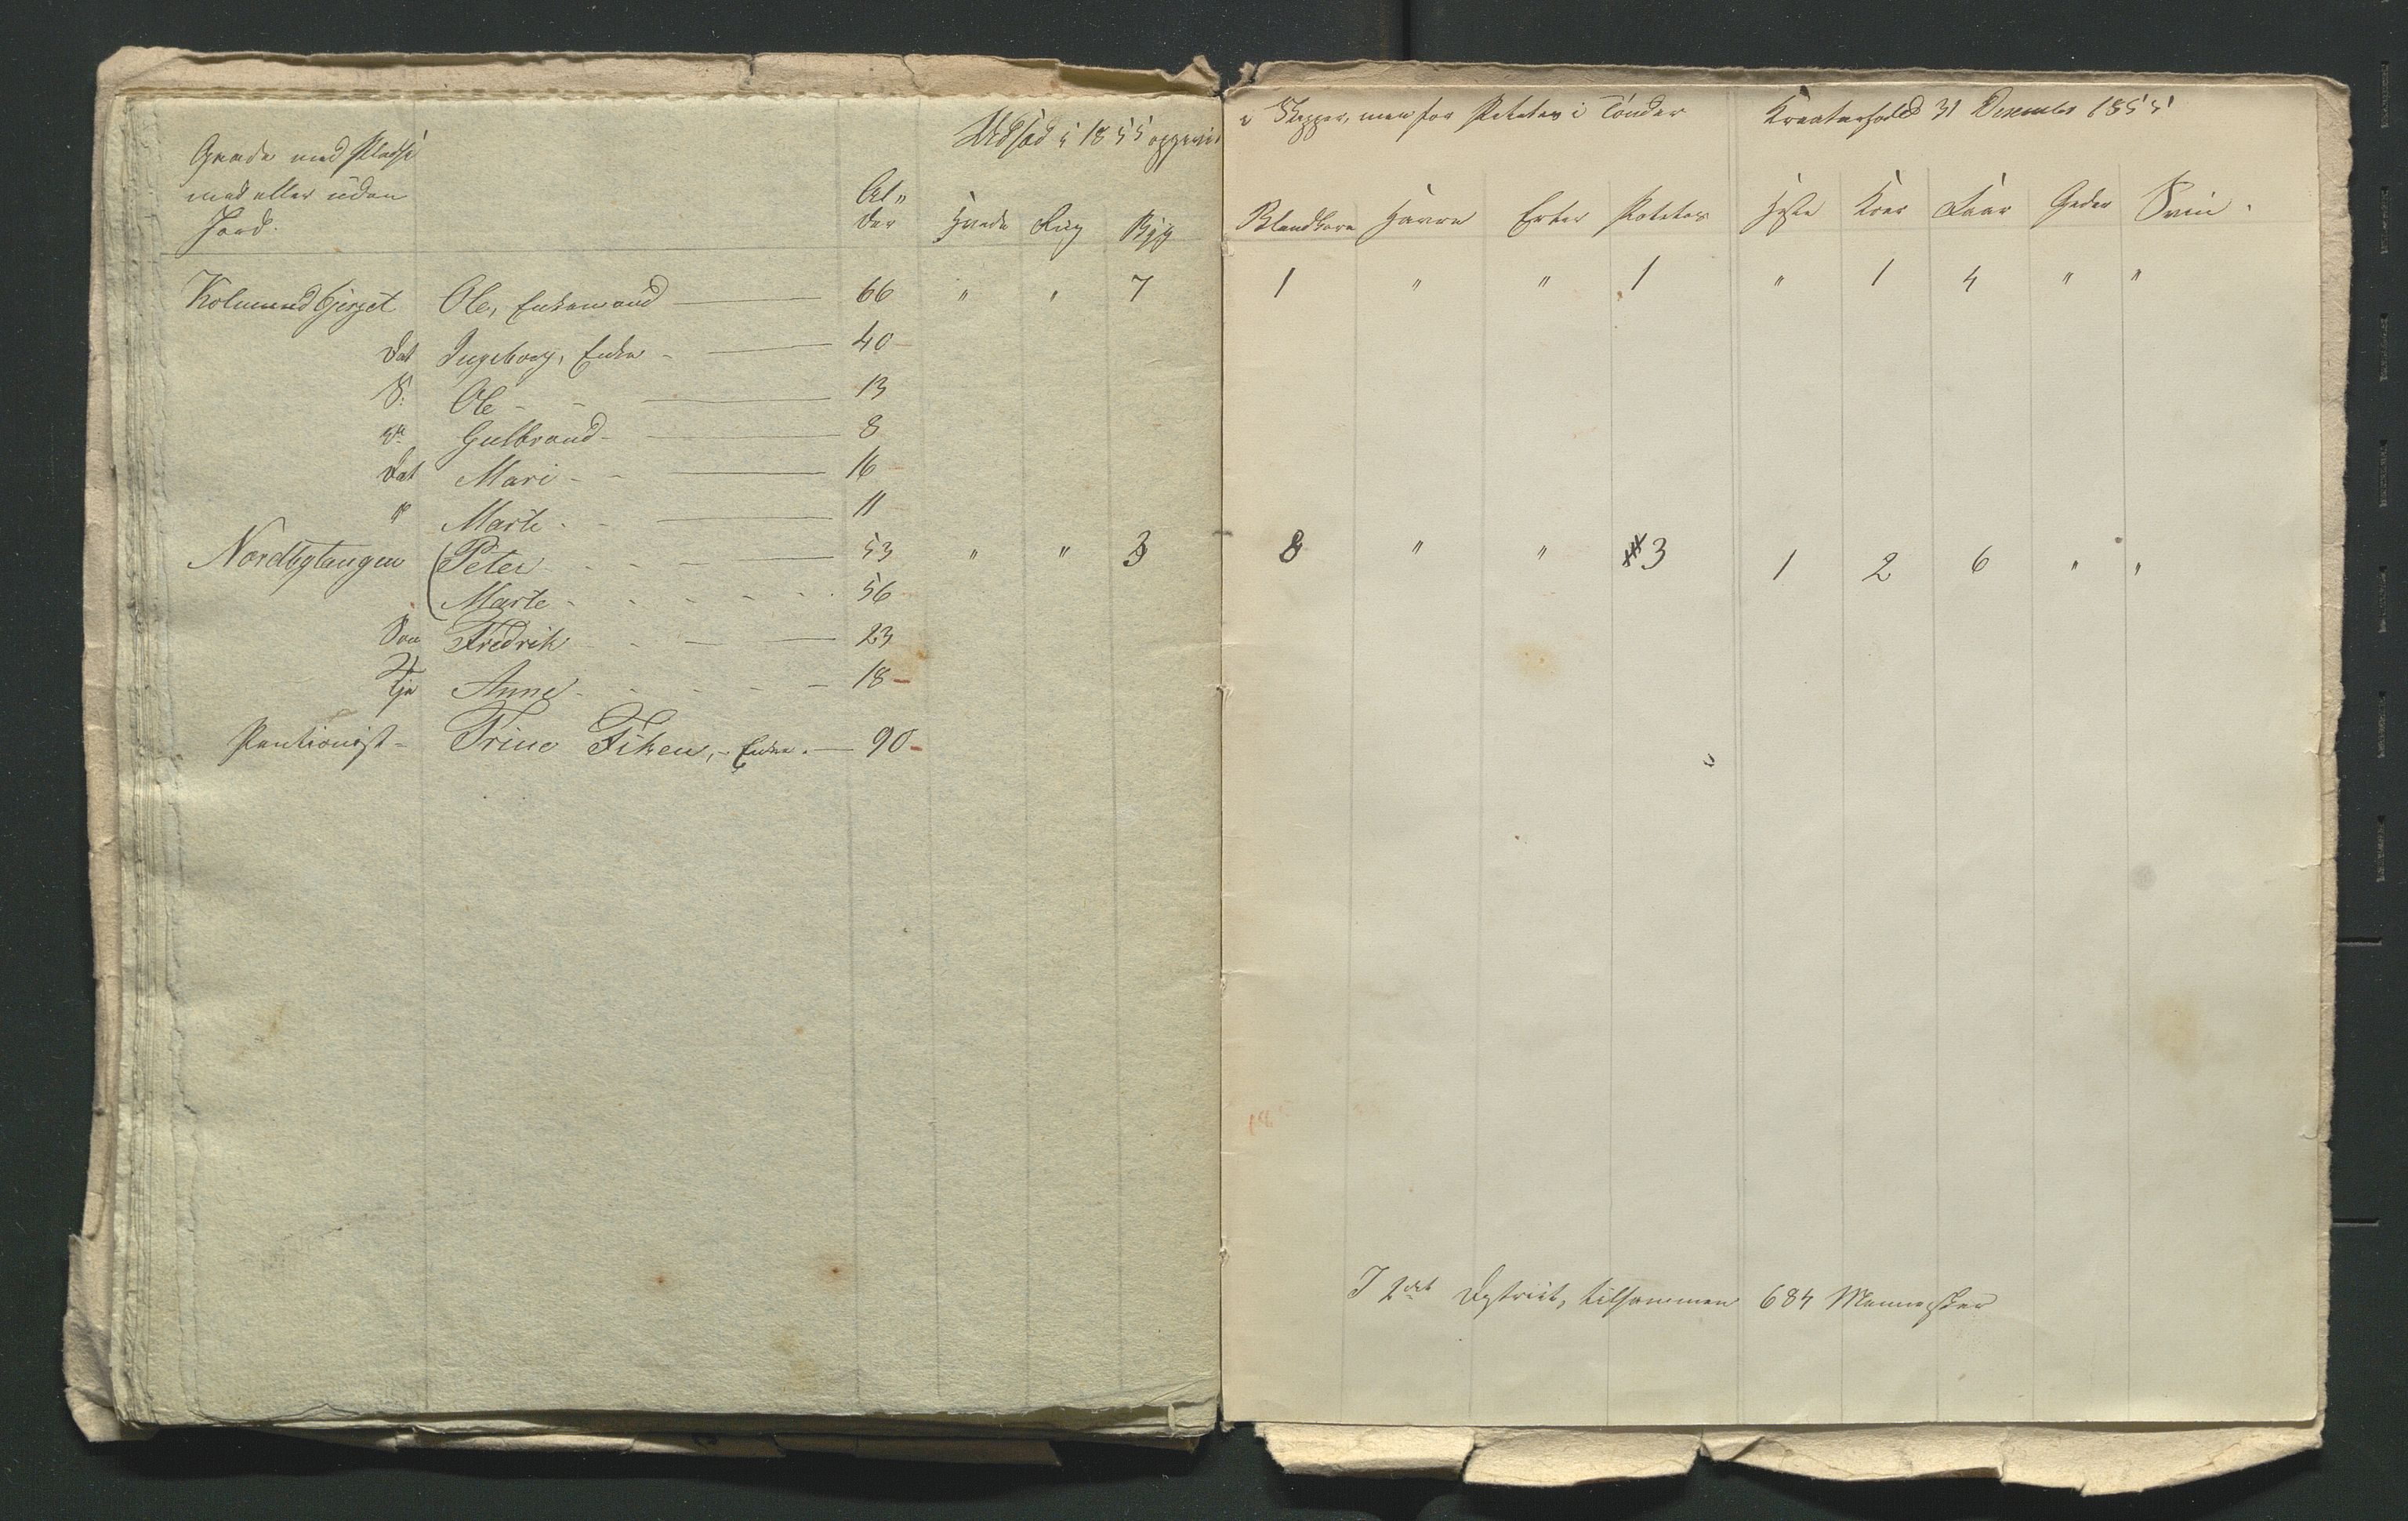 Gaarde med Pladse
med eller uden
Jord.
Al„
der
Udsæd i 1855 opgivet
Hvede Rug Byg
i Skjepper, men for Poteter i Tönder
Kreaturhold 31 December 1855
Blandkorn Havre Erter Poteter Heste Köer Faar Geder Svin.
Kolmundbjerget Ole, Enkemand — 66 " " 7 1 " " 1 " 1 4 " "
Dat Ingeborg, Enke — 40
S: Ole — 13
" Gulbrand — 8
Dat Mari — 16
" Marte — 11
Nordbytangen Peter — 53 " " 3 8 " " 3 1 2 6 " "
Marte — 56
Sön Fredrik — 23
Tje Anne — 18
Pentionist - Trine Fiken, - Enke. — 90
I 2det Dystrict, tilsammen 684 Mennesker